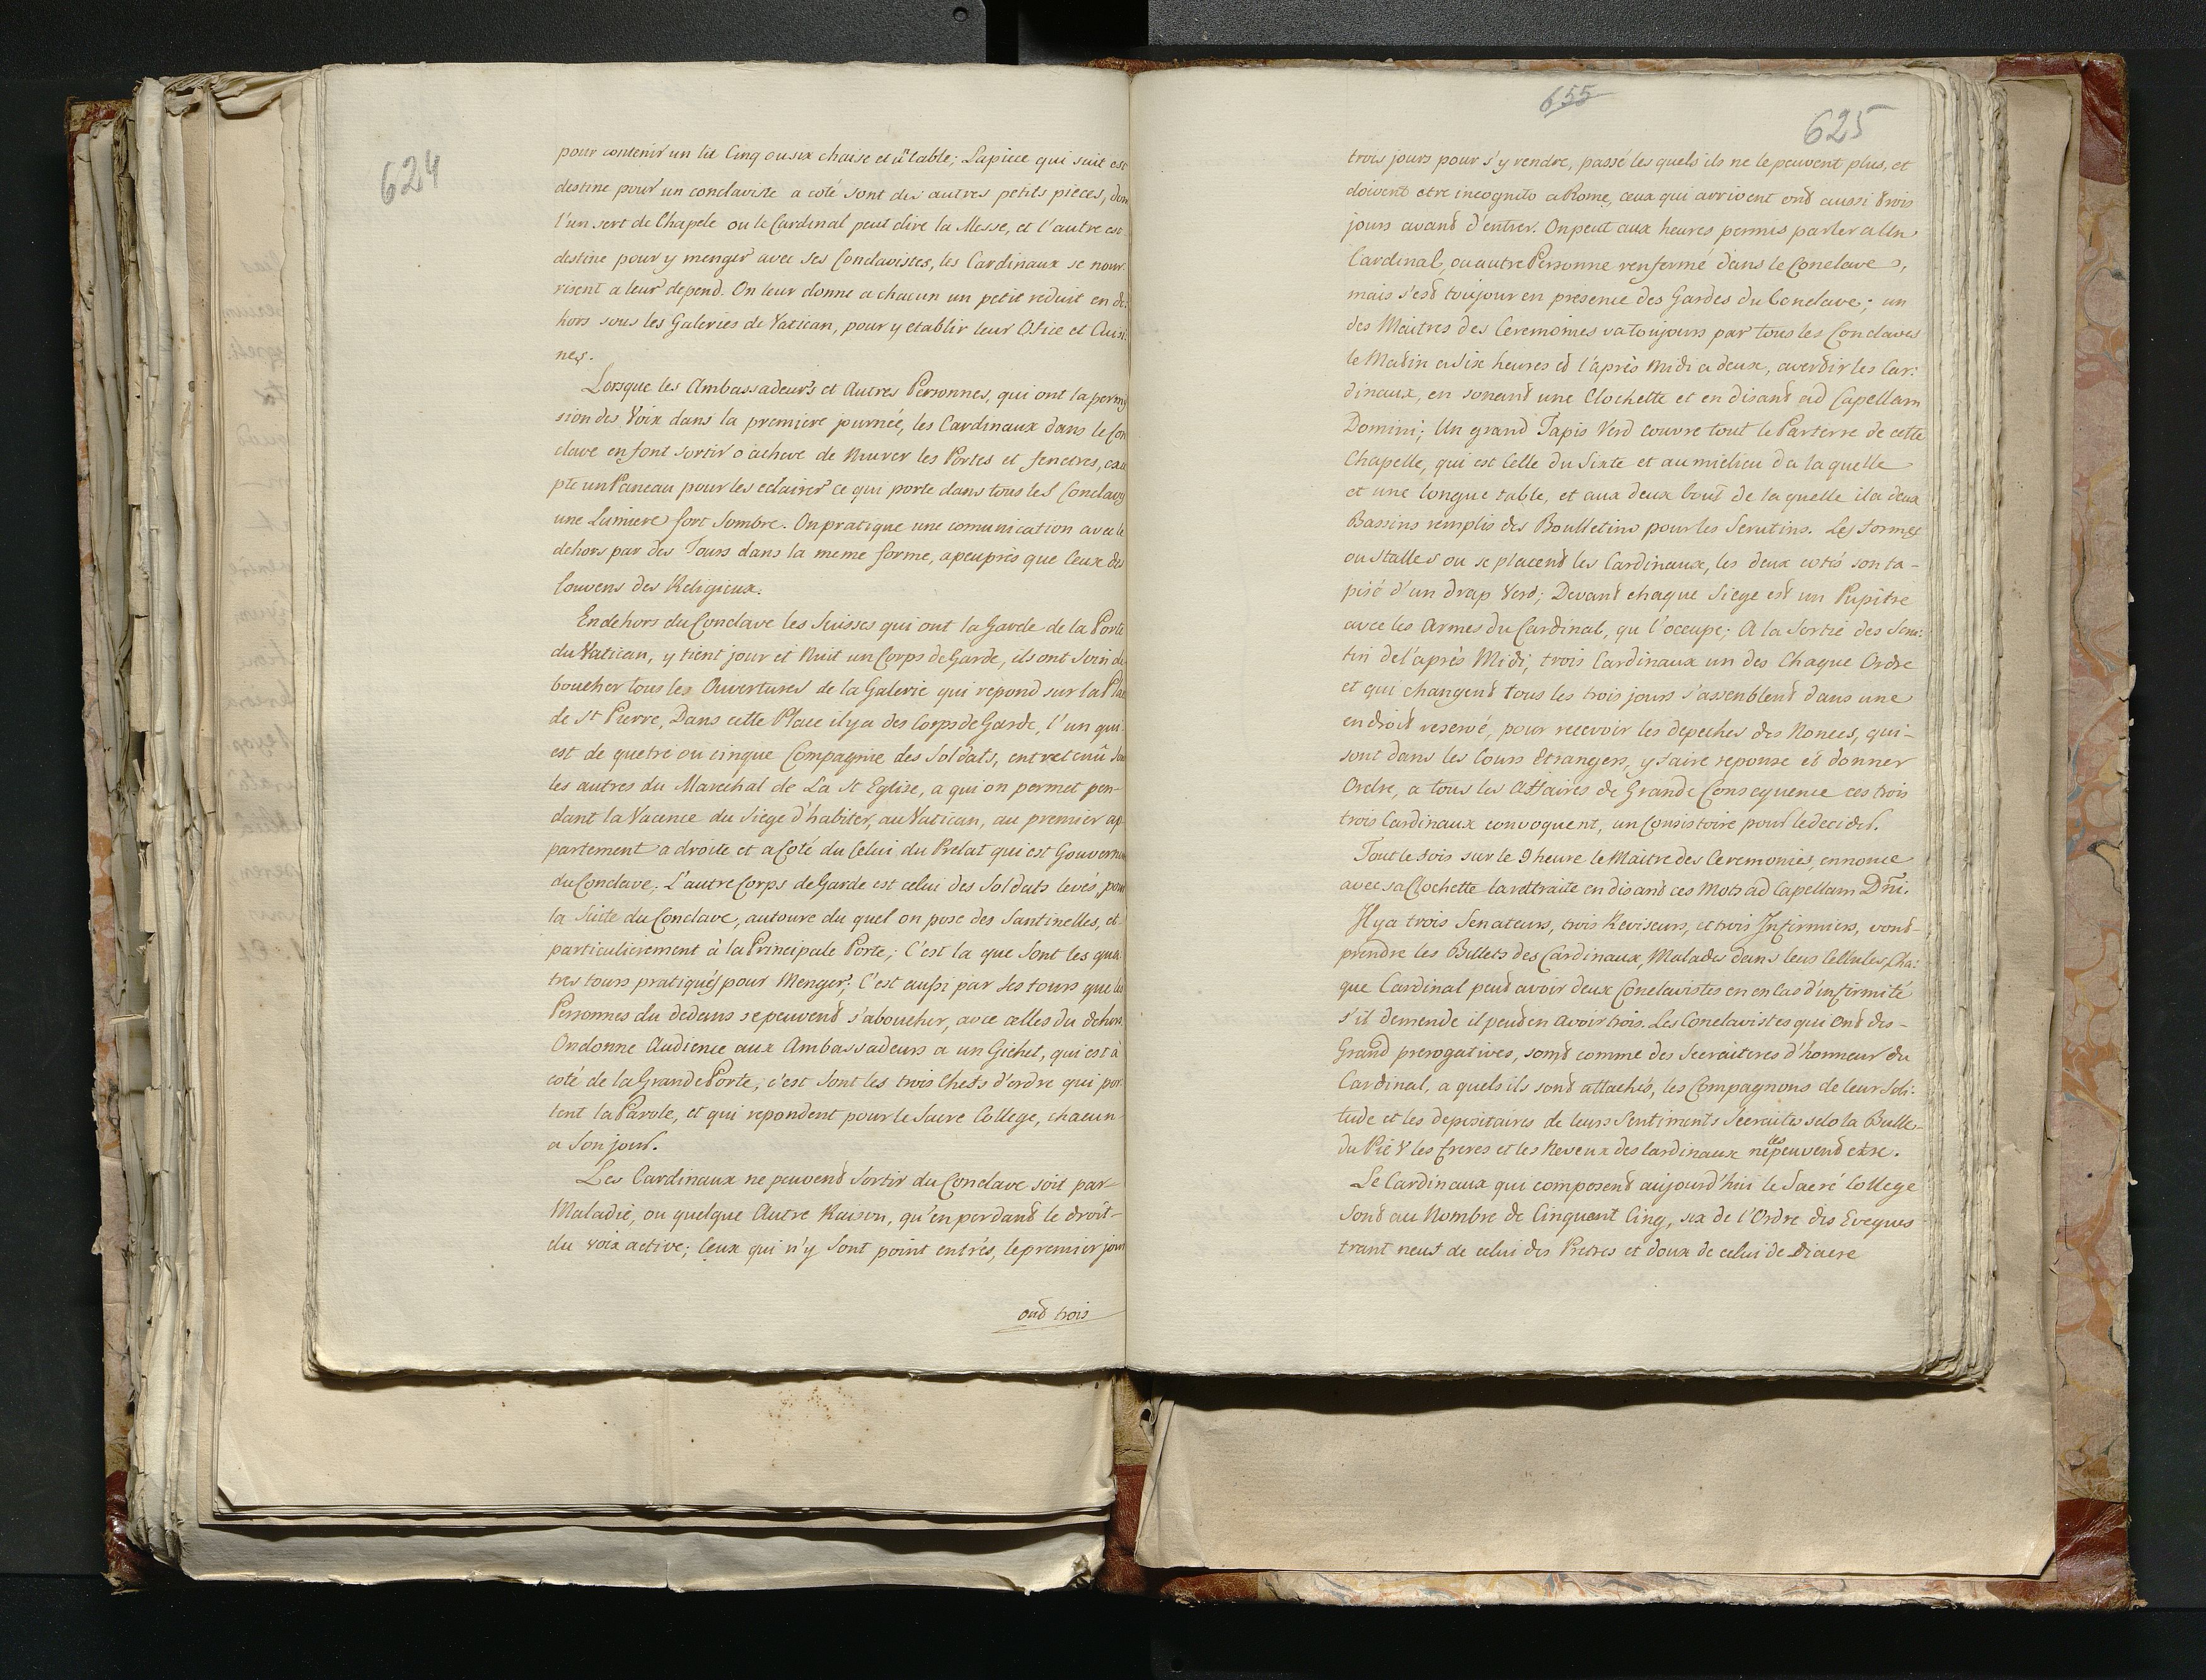 624
pour contenir un lit Cinq ou six chaise et ūtable; La piece qui suit est
destine pour un conclaviste a coté sont des autres petits pieces, don
l'un sert de Chapele ou le Cardinal peut dire la Messe, et l'autre est
destine pour y menger avec ses Conclavistes, les Cardinaux se nour-
risent a leur depend. On leur donne a chacun un petit reduit en de-
hors sous les Galeries de Vatican, pour y etablir leur Ofice et Cuisi-
nes.
Lorsque les Ambassadeurs et Autres Personnes, qui ont la permis
sion des Voix dans la premiere journée, les Cardinaux dans le Con
clave en font sortir o acheve de Murer les Portes et fenetres,
pte un Paneau pour les eclairer ce qui porte dans tous les Conclavs
une Lumiere fort Sombre. On pratique une comunication avec le
dehors par des Tours dans la meme forme, apeuprès que Ceux des
Couvens des Religieux.
En dehors du Conclave les Suisses qui ont la Garde de la Porte
du Vatican, y tient jour et Nuit un Corps de Garde, ils ont Soin de
boucher tous les Ouvertures de la Galerie qui repond sur la Pla
de St Pierre, Dans cette Place il y a des Corps de Garde, l'un qui-
est de quetre ou cinque Compagnie des Soldats, entretenû
les autres du Marechal de La St Eglise, a qui on permet pen-
dant la Vacence du Siege d'habiter, au Vatican, au premier ap-
partement a droite et a Coté du Celui du Prelat qui est Gouverneur
du Conclave; L'autre Corps de Garde est celui des Soldats levés, pour
la Suite du Conclave, autoure du quel on pose des Santinelles, et-
particulierement à la Principale Porte; C'est la que Sont les qua-
tres tours pratiqués pour Menger; C'est aussi par ses tours que les
Personnes du dedans se peuvent s'aboucher, avce celles du dehors.
On donne Audience aux Ambassadeurs a un Gichet, qui est à
coté de la Grande Porte, c'est Sont les trois Chefs d'ordre qui por-
tent la Parole, et qui repondent pour le Sacre College, chacun-
a Son jour.
Les Cardinaux ne peuvent Sortir du Conclave soit par-
Maladie, ou quelque Autre Raison, qu'en perdant le droit-
du voix active; Ceux qui n'y Sont point entrés, le premier jour
ont trois
655
625
trois jours pour s'y rendre, passé les quels ils ne le peuvent plus, et
doivent etre incognito a Rome, ceux qui arrivent ont aussi trois
jours avant d'entrer. On peut aux heures permis parler a Un
Cardinal, ou autre Personne renfermé dans le Conclave,
mais s'est toujour en presence des Gardes du Conclave; un
des Maitres des Ceremoinies va toujours par tous les Conclaves
le Matin a Six heures et l'après Midi a deux, avertir les Car-
dinaux, en sonant une Clochette et en disant ad Capellam
Domini; Un grand Tapis Verd couvre tout le Parterre de cette
Chapelle, qui est Celle du Sixte et au milieu da laquelle
et une longue table, et aux deux bout de laquelle il a deux
Bassins remplis des Boulletins pour les Scrutins. Les formes
ou Stalles ou se placent les Cardinaux, les deux cotés son ta-
pisé d'un drap Verd; Devant chaque Siege est un Pupitre
avec les Armes du Cardinal, qu l'occupe; A la Sortie des Scru-
tin del'après Midi, trois Cardinaux un des Chaque Ordre
et qui changent tous les trois jours s'assenblent dans une
endroit reservé, pour recevoir les depeches des Nonces, qui-
sont dans les Cours Etrangers, y faire reponse et donner
Ordre, a tous les Affaires de Grande Consequence ces trois
trois Cardinaux convoquent, un Consistoire pour le decider.
Tout le Sois sur le 9 heure le Maitre des Ceremonies, ennonce
avec sa Clochette la rettraite en disant ces Mots ad Capellam Dn̄i.
Il y a trois Senateurs, trois Reviseurs, et trois Infirmiers, vont-
prendre les Billets des Cardinaux, Malades dans leus Cellules, Cha-
que Cardinal peut avoir deux Conclavistes en en Cas d'infirmité
s'il demende il peut en Avoir trois. Les Conclavistes qui Ont des-
Grand prerogatives, somt comme des Secraiteres d'honneur du
Cardinal, a quels ils sont attachés, les Compagnons de leur Soli-
tude et les depositaires de leurs Sentiments Secraites selo la Bulle-
du Pie V les freres et les Neveux des Cardinaux ne les peuvent etre.
Le Cardinaux qui composent aujourd'hui le Sacré College
Sont au Nombre de Cinquant Cinq, six de l'Ordre des Eveques
trant neuf de celui des Pretres et doux de celui de Diacre